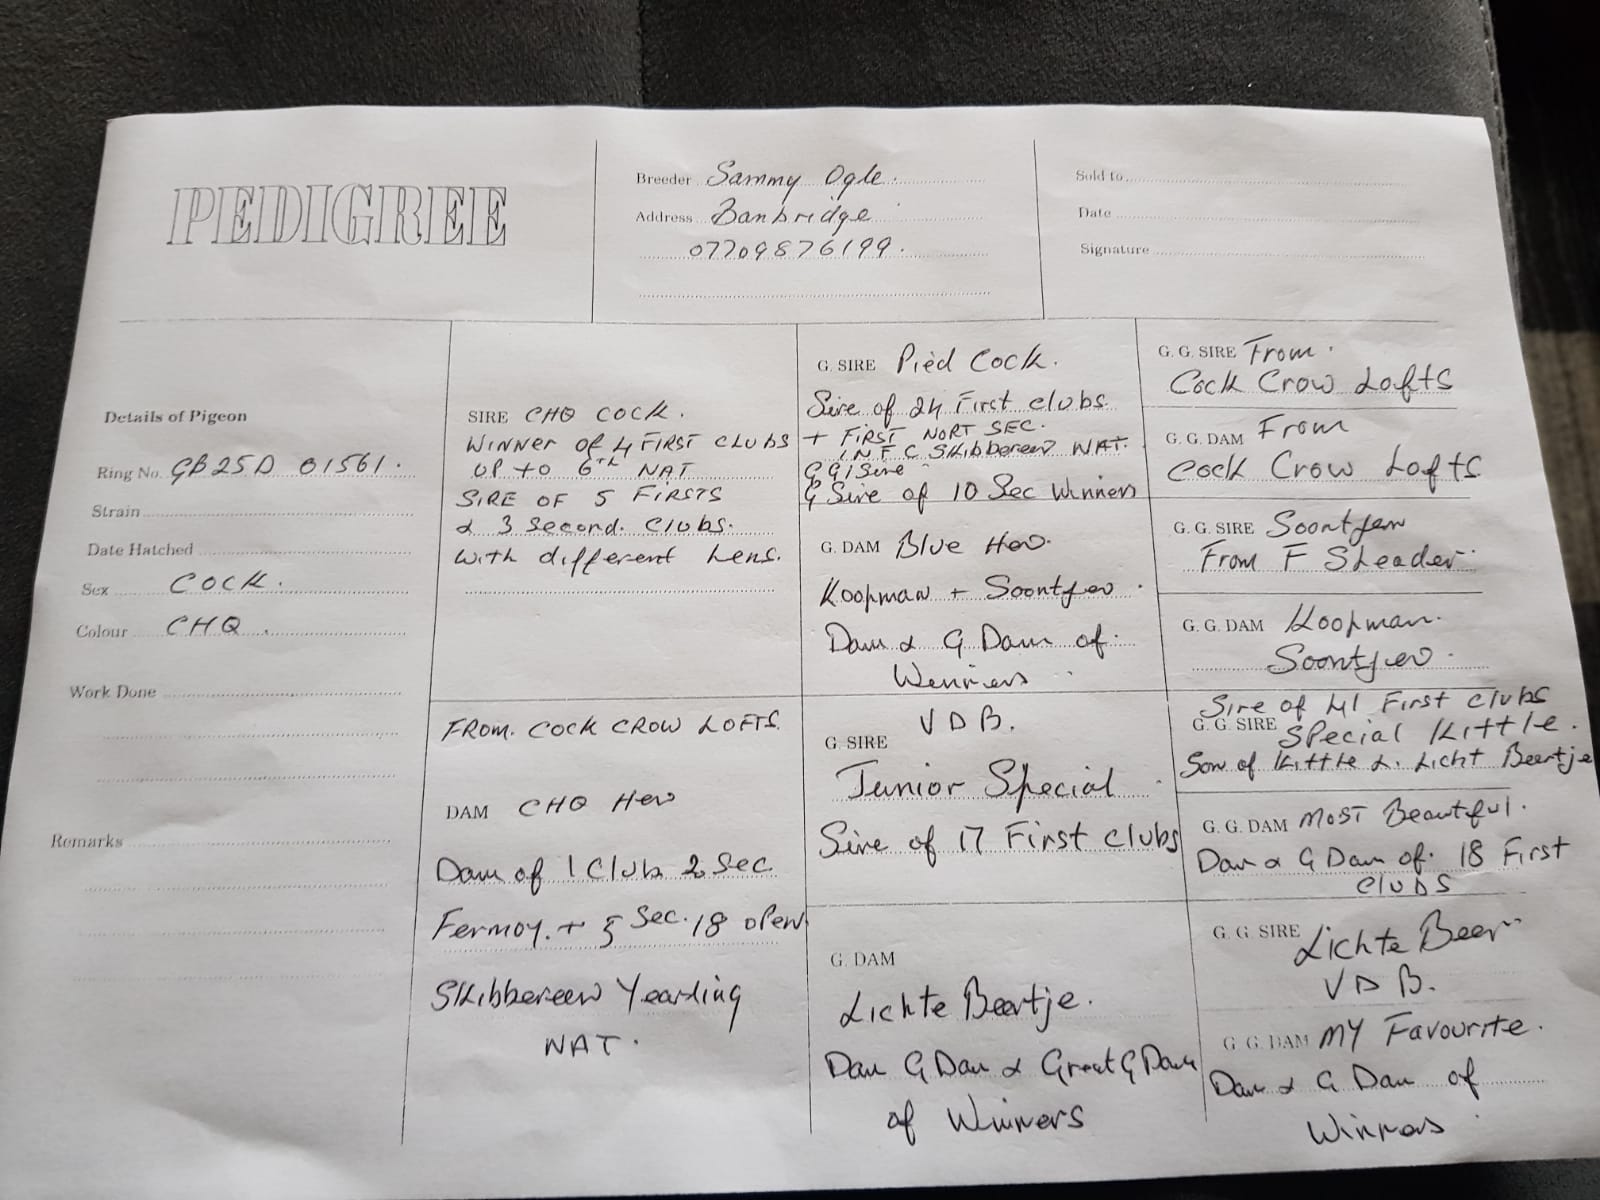 PEDIGREE
Breeder Sammy Ogle.
Address Banbridge
07709876199.
Sold to
Date
Signature
Details of Pigeon
Ring No. GB25D 01561.
Strain
Date Hatched
Sex COCK.
Colour CHQ.
Work Done
Remarks
SIRE CHQ COCK.
WINNER OF 4 FIRST CLUBS
UP TO 6TH NAT
SIRE OF 5 FIRSTS
& 3 Second. Clubs.
With different hens.
FROM. COCK CROW LOFTS.
DAM CHQ Hen
Dam of 1 Club 2 Sec
Fermoy. + 5 Sec. 18 open
Skibbereen Yearling
NAT.
G. SIRE Pied Cock.
Sire of 24 First clubs
+ FIRST NORT SEC.
I.N.F.C Skibbereen NAT.
G G/Sire
G Sire of 10 Sec Winners
G. DAM Blue Hen.
Koopman + Soontjen.
Dam & G Dam of.
Winners
V D B.
G. SIRE
Junior Special
Sire of 17 First Clubs
G. DAM
Lichte Beertje.
Dam G Dam & Great G Dam
of Winners
G. G. SIRE From.
Cock Crow Lofts
G. G. DAM From
Cock Crow Lofts
G. G. SIRE Soontjen
From F Sheader
G. G. DAM Koopman.
Soontjen.
Sire of 41 First Clubs
G. G. SIRE Special Kittle.
Son of Kittle & Licht Beertje
G. G. DAM MOST Beautiful.
Dam & G Dam of. 18 First
Clubs
G. G. SIRE Lichte Beer
V D B.
G. G. DAM MY Favourite.
Dam & G Dam of
Winners